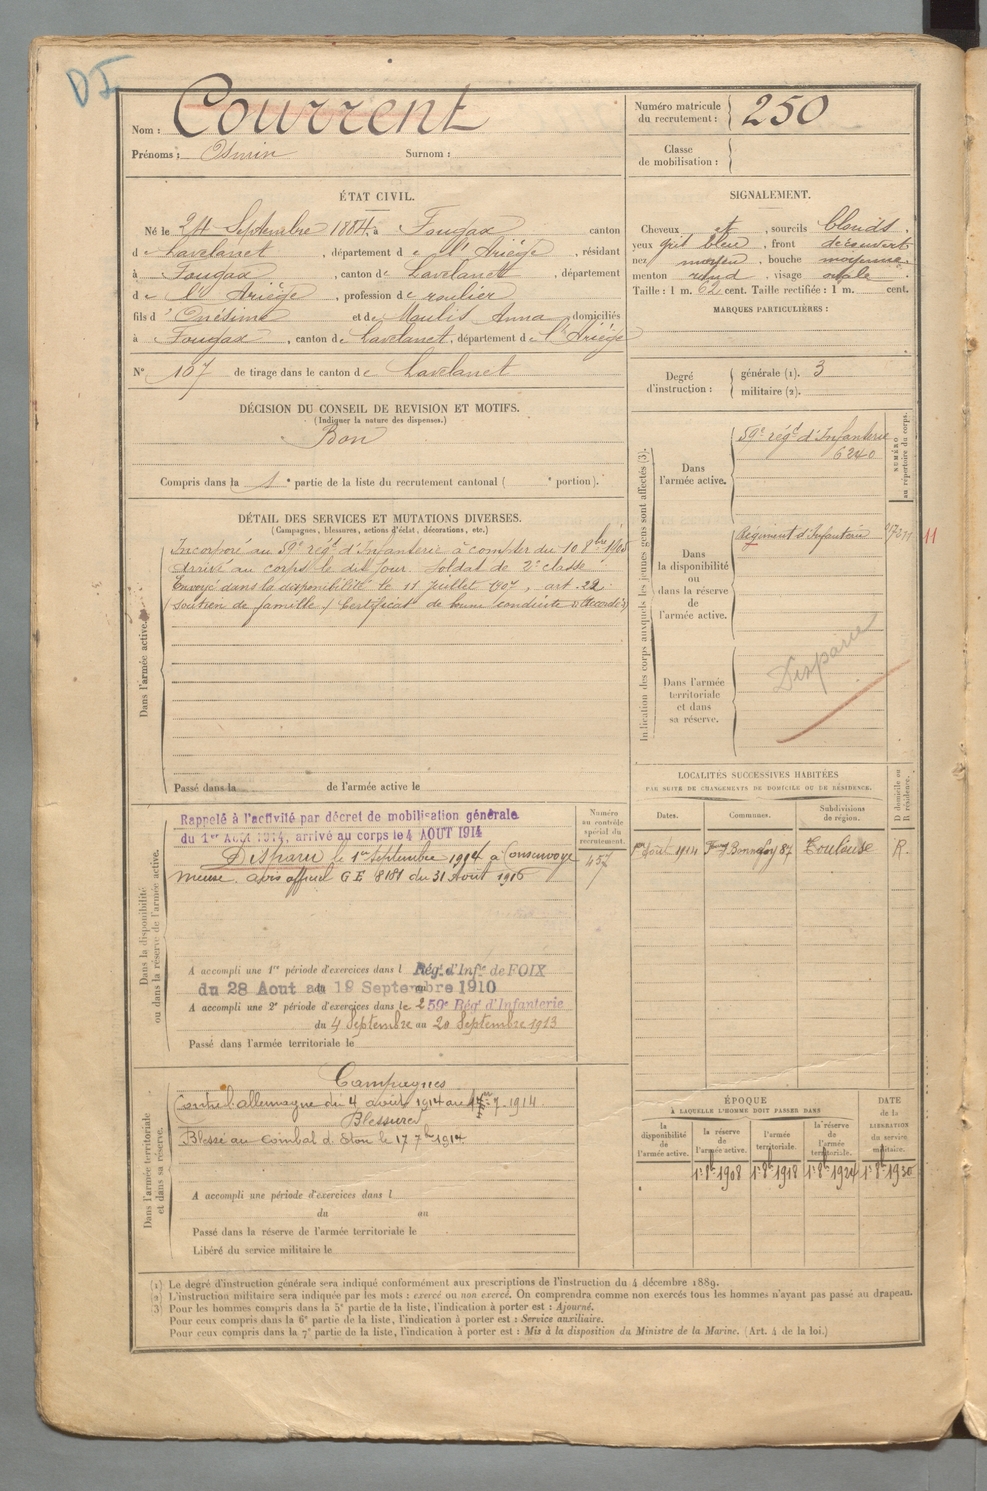 DI
Nom : Courrent
Prénoms : Osmin Surnom :
Numéro matricule
du recrutement : 250
Classe
de mobilisation :
ÉTAT CIVIL.
Né le 24 Septembre 1884, à Fougax canton
d e Lavelanet, département d e l'Ariège, résidant
à Fougax, canton de Lavelanet, département
d e l'Ariège, profession de roulier
fils d' Onésime et de Maulis Anna domiciliés
à Fougax, canton de Lavelanet, département de l'Ariège
N° 107 de tirage dans le canton de Lavelanet
SIGNALEMENT.
Cheveux et, sourcils blonds,
yeux gris bleu, front découvert
nez moyen, bouche moyenne,
menton rond, visage ovale
Taille : 1 m. 62 cent. Taille rectifiée : 1 m. cent.
MARQUES PARTICULIÈRES :
Degré
d'instruction :
générale (1). 3
militaire (2).
DÉCISION DU CONSEIL DE REVISION ET MOTIFS.
(Indiquer la nature des dispenses.)
Bon
Compris dans la 1e partie de la liste du recrutement cantonal ( e portion).
DÉTAIL DES SERVICES ET MUTATIONS DIVERSES.
(Campagnes, blessures, actions d'éclat, décorations, etc.)
Dans l'armée active.
Incorporé au 59e régt d'Infanterie à compter du 10 8bre 1905
Arrivé au corps le dit jour. Soldat de 2e classe
Envoyé dans la disponibilité le 11 Juillet 1907, art. 22
(Soutien de famille) Certificat de bonne conduite "Accordé"
Passé dans la de l'armée active le
Indication des corps auxquels les jeunes gens sont affectés (3).
NUMÉRO
au répertoire du corps.
Dans
l'armée active.
59e régt d'Infanterie
6240
Dans
la disponibilité
ou
dans la réserve
de
l'armée active.
Régiment d'Infanterie
11
Dans l'armée
territoriale
et dans
sa réserve.
Disparu
LOCALITÉS SUCCESSIVES HABITÉES
PAR SUITE DE CHANGEMENTS DE DOMICILE OU DE RÉSIDENCE.
Dates. Communes. Subdivisions
de région.
D domicile ou
R résidence.
Août 1914 Bonnefoy 87 Toulouse R.
Dans la disponibilité
ou dans la réserve de l'armée active.
Rappelé à l'activité par décret de mobilisation générale
du 1er Aout 1914, arrivé au corps le 4 AOUT 1914
Disparu le 1er Septembre 1914 à Consenvoye
Meuse. avis officiel G E 8181 du 31 Août 1916
Numéro
au contrôle
spécial du
recrutement.
457
A accompli une 1re période d'exercices dans l Rég. d'Inf. de FOIX
du 28 Aout au 19 Septembre 1910
A accompli une 2e période d'exercices dans le 259e Régt d'Infanterie
du 4 Septembre au 20 Septembre 1913
Passé dans l'armée territoriale le
Dans l'armée territoriale
et dans sa réserve.
Campagnes
Contre l'allemagne du 4 août 1914 au 7.1914.
Blessures
Blessé au combat d. Eton le 17 7bre 1914
A accompli une période d'exercices dans l
du au
Passé dans la réserve de l'armée territoriale le
Libéré du service militaire le
ÉPOQUE
À LAQUELLE L'HOMME DOIT PASSER DANS
la
disponibilité
de
l'armée active.
la réserve
de
l'armée active.
l'armée
territoriale.
la réserve
de
l'armée
territoriale.
DATE
de la
LIBÉRATION
du service
militaire.
1er 8bre 1908 1er 8bre 1918 1er 8bre 1924 1er 8bre 1930
(1) Le degré d'instruction générale sera indiqué conformément aux prescriptions de l'instruction du 4 décembre 1889.
(2) L'instruction militaire sera indiquée par les mots : exercé ou non exercé. On comprendra comme non exercés tous les hommes n'ayant pas passé au drapeau.
(3) Pour les hommes compris dans la 5e partie de la liste, l'indication à porter est : Ajourné.
Pour ceux compris dans la 6e partie de la liste, l'indication à porter est : Service auxiliaire.
Pour ceux compris dans la 7e partie de la liste, l'indication à porter est : Mis à la disposition du Ministre de la Marine. (Art. 4 de la loi.)